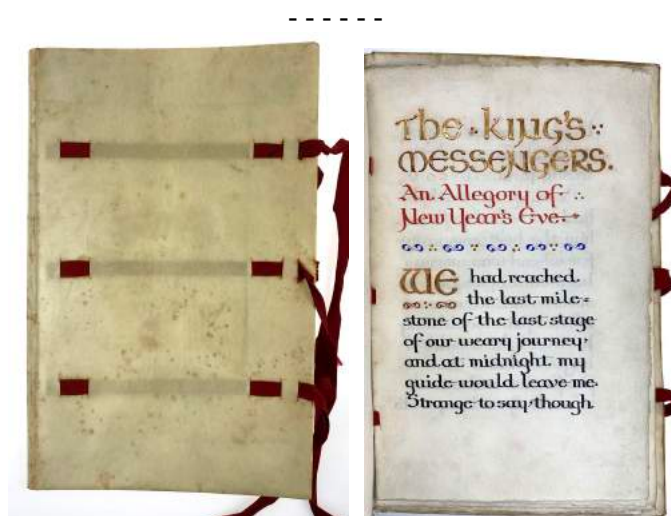 The King's
Messengers.
An Allegory of
New Year's Eve.
We had reached
the last mile-
stone of the last stage
of our weary journey,
and at midnight my
guide would leave me.
Strange to say, though